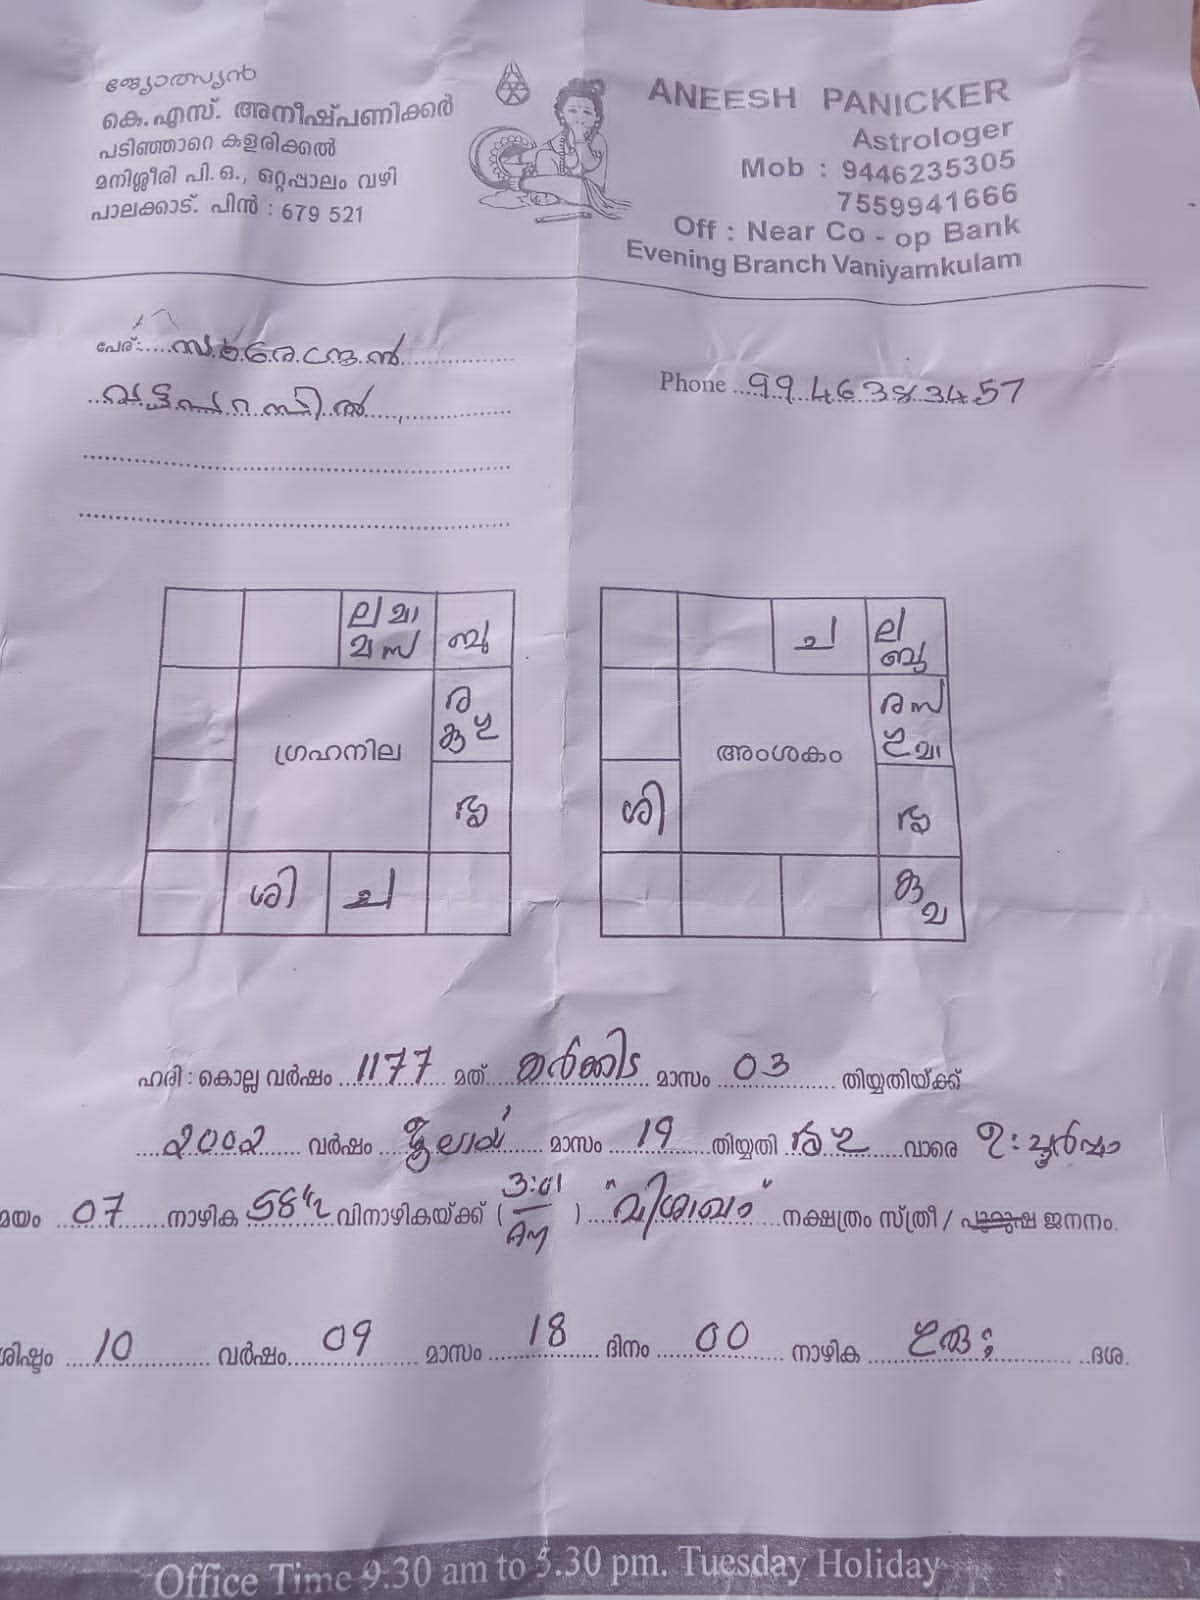 ജ്യോത്സ്യൻ
കെ.എസ്. അനീഷ്പണിക്കർ
പടിഞ്ഞാറെ കളരിക്കൽ
മനിശ്ശീരി പി.ഒ., ഒറ്റപ്പാലം വഴി
പാലക്കാട്. പിൻ : 679 521
ANEESH PANICKER
Astrologer
Mob : 9446235305
7559941666
Off : Near Co - op Bank
Evening Branch Vaniyamkulam
പേര്:
Phone 9946383457
ല മാ
ബു
ര
ഗ്രഹനില
ശി
ച
ച
ല
ബു
അംശകം
ശി
ഹരി : കൊല്ല വർഷം 1177 മത് കർക്കിട മാസം 03 തിയ്യതിയ്ക്ക്
2002 വർഷം ജൂലായ് മാസം 19 തിയ്യതി വാരെ
മയം 07 നാഴിക 58½ വിനാഴികയ്ക്ക് ( 3:01 Am ) "വിശാഖം" നക്ഷത്രം സ്ത്രീ / പുരുഷ ജനനം.
ശിഷ്ടം 10 വർഷം 09 മാസം 18 ദിനം 00 നാഴിക ദശ.
Office Time 9.30 am to 5.30 pm. Tuesday Holiday